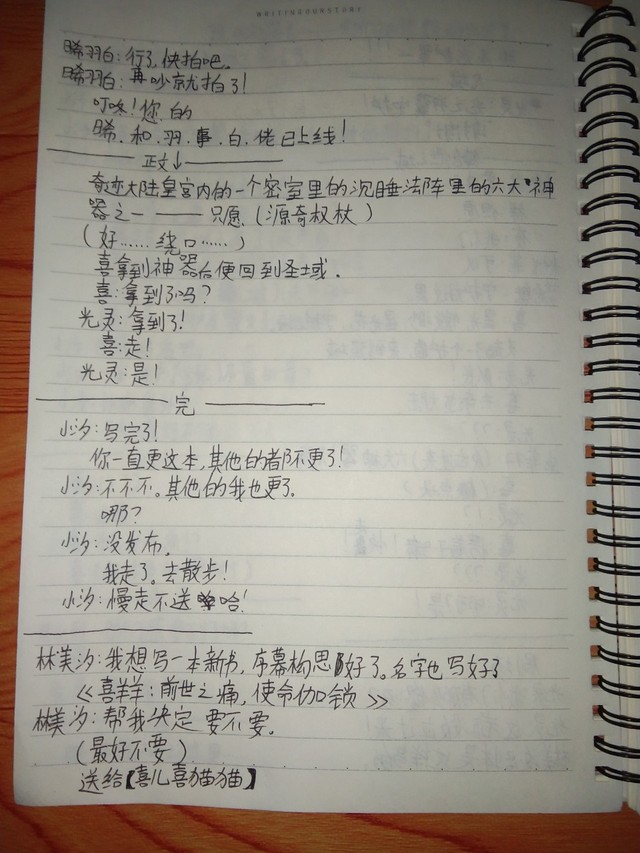 WRITINGOURSTORY
晞羽白:行了,快拍吧。
晞羽白:再吵就拍了!
叮咚!你.的
晞.和.羽.事.白.佬已上线!
正文↓
奇迹大陆皇宫内的一个密室里的沉睡法阵里的六大神
器之一——只愿(源奇权杖)
(好……绕口……)
喜拿到神器后便回到圣域.
喜:拿到了吗?
光灵:拿到了!
喜:走!
光灵:是!
完
小汐:写完了!
你一直更这本,其他的都不更了!
小汐:不不不。其他的我也更了。
哪?
小汐:没发布。
我走了。去散步!
小汐:慢走不送哈!
林美汐:我想写一本新书,序幕构思好了。名字也写好了
《喜羊羊:前世之痛,使命枷锁》
林美汐:帮我决定要不要。
(最好不要)
送给【喜儿喜猫猫】